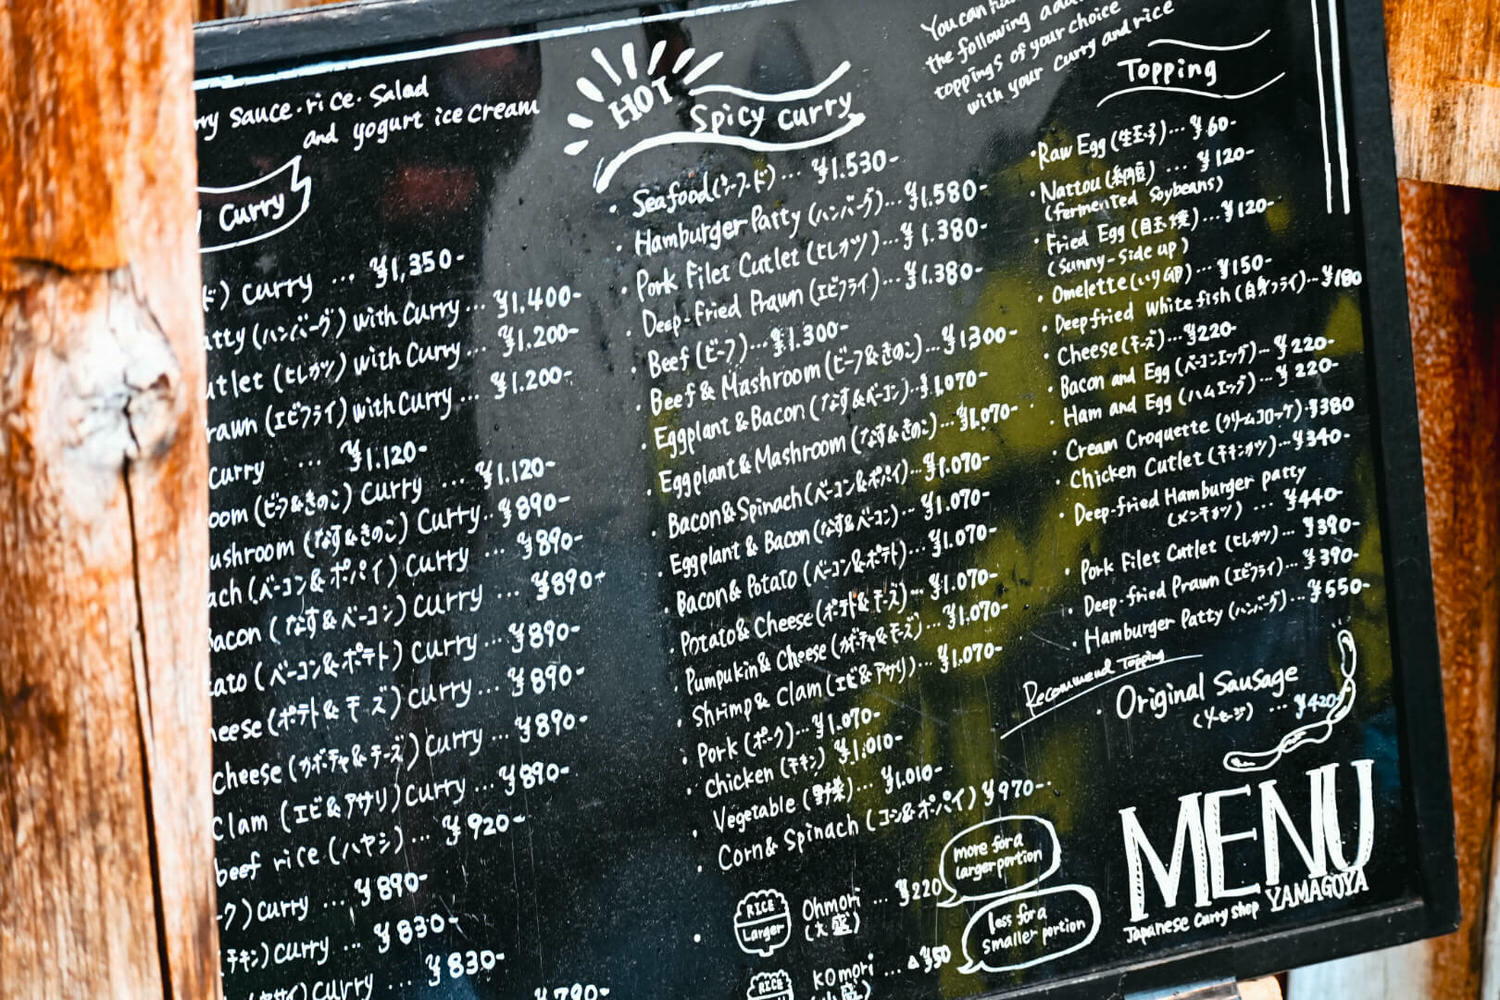 sauce・rice・Salad
and yogurt ice cream
Curry
curry ... ¥1,350-
(ハンバーグ) with Curry ... ¥1.400-
(ヒレカツ) with Curry ... ¥1.200-
(エビフライ) with Curry ... ¥1.200-
Curry ... ¥1.120-
(ビーフ&きのこ) Curry ... ¥1.120-
(なす&きのこ) Curry .. ¥890-
(ベーコン&ポパイ) curry ... ¥890-
(なす&ベーコン) curry ... ¥890-
(ベーコン&ポテト) Curry ... ¥890-
(ポテト&チーズ) curry ... ¥890-
cheese (カボチャ&チーズ) curry ... ¥890-
clam (エビ&アサリ) curry ... ¥890-
beef rice (ハヤシ) ... ¥920-
curry ... ¥890-
チキン) curry ... ¥830-
curry ... ¥830-
¥790-
HOT
Spicy curry
・Seafood (シーフード) ... ¥1.530-
・Hamburger Patty (ハンバーグ) ... ¥1.580-
・Pork Filet Cutlet (ヒレカツ) ... ¥1.380-
・Deep-Fried Prawn (エビフライ) ... ¥1.380-
・Beef (ビーフ) ... ¥1.300-
・Beef & Mashroom (ビーフ&きのこ) ... ¥1300-
・Eggplant & Bacon (なす&ベーコン) .. ¥1.070-
・Eggplant & Mashroom (なす&きのこ) ... ¥1.070-
・Bacon & Spinach (ベーコン&ポパイ) ... ¥1.070-
・Eggplant & Bacon (なす&ベーコン) ... ¥1.070-
・Bacon & Potato (ベーコン&ポテト) ... ¥1.070-
・Potato & Cheese (ポテト&チーズ) ... ¥1.070-
・Pumpukin & Cheese (カボチャ&チーズ) ... ¥1.070-
・Shrimp & Clam (エビ&アサリ) ... ¥1.070-
・Pork (ポーク) ... ¥1.070-
・Chicken (チキン) ¥1.010-
・Vegetable (野菜) ... ¥1.010-
・Corn & Spinach (コーン&ポパイ) ¥970-
RICE
Larger
Ohmori ... ¥220
(大盛)
more for a
larger portion
RICE
KOmori ... ▲¥50
less for a
smaller portion
You can
the following
toppings of your choice
with your curry and rice
Topping
・Raw Egg (生玉子) ... ¥60-
・Nattou (納豆) ... ¥120-
(fermented Soybeans)
・Fried Egg (目玉焼) ... ¥120-
(Sunny-side up)
・Omelette (いり卵) ... ¥150-
・Deepfried White fish (白身フライ) ... ¥180
・Cheese (チーズ) ... ¥220-
・Bacon and Egg (ベーコンエッグ) ... ¥220-
・Ham and Egg (ハムエッグ) ... ¥220-
・Cream Croquette (クリームコロッケ) ・¥380
・Chicken Cutlet (チキンカツ) ... ¥340-
・Deep-fried Hamburger patty
(メンチカツ) ... ¥440-
・Pork Filet Cutlet (ヒレカツ) ... ¥390-
・Deep-fried Prawn (エビフライ) ... ¥390-
・Hamburger Patty (ハンバーグ) ... ¥550-
Recommend Topping
・Original Sausage
(ソーセージ) ... ¥420-
MENU
Japanese Curry shop YAMAGOYA